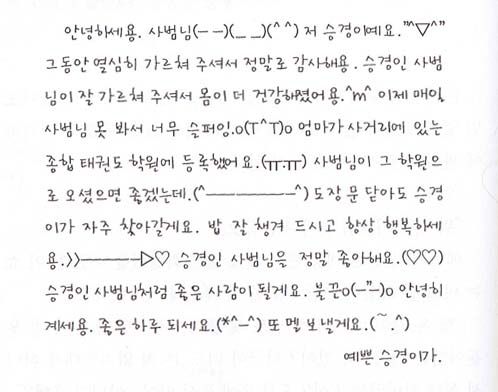 안녕하세용. 사범님(－－)(＿＿)(^^) 저 승경이예요.‴^▽^″
그동안 열심히 가르쳐 주셔서 정말로 감사해용. 승경인 사범
님이 잘 가르쳐 주셔서 몸이 더 건강해졌어용.^m^ 이제 매일
사범님 못 봐서 너무 슬퍼잉.o(T^T)o 엄마가 사거리에 있는
종합 태권도 학원에 등록했어요.(ㅠ.ㅠ) 사범님이 그 학원으
로 오셨으면 좋겠는데.(^―――――^) 도장 문 닫아도 승경
이가 자주 찾아갈게요. 밥 잘 챙겨 드시고 항상 행복하세
용.》―――▷♡ 승경인 사범님을 정말 좋아해요.(♡♡)
승경인 사범님처럼 좋은 사람이 될게요. 불끈o(–"–)o 안녕히
계세용. 좋은 하루 되세요.(*^–^) 또 멜 보낼게요.(~.^)
예쁜 승경이가.